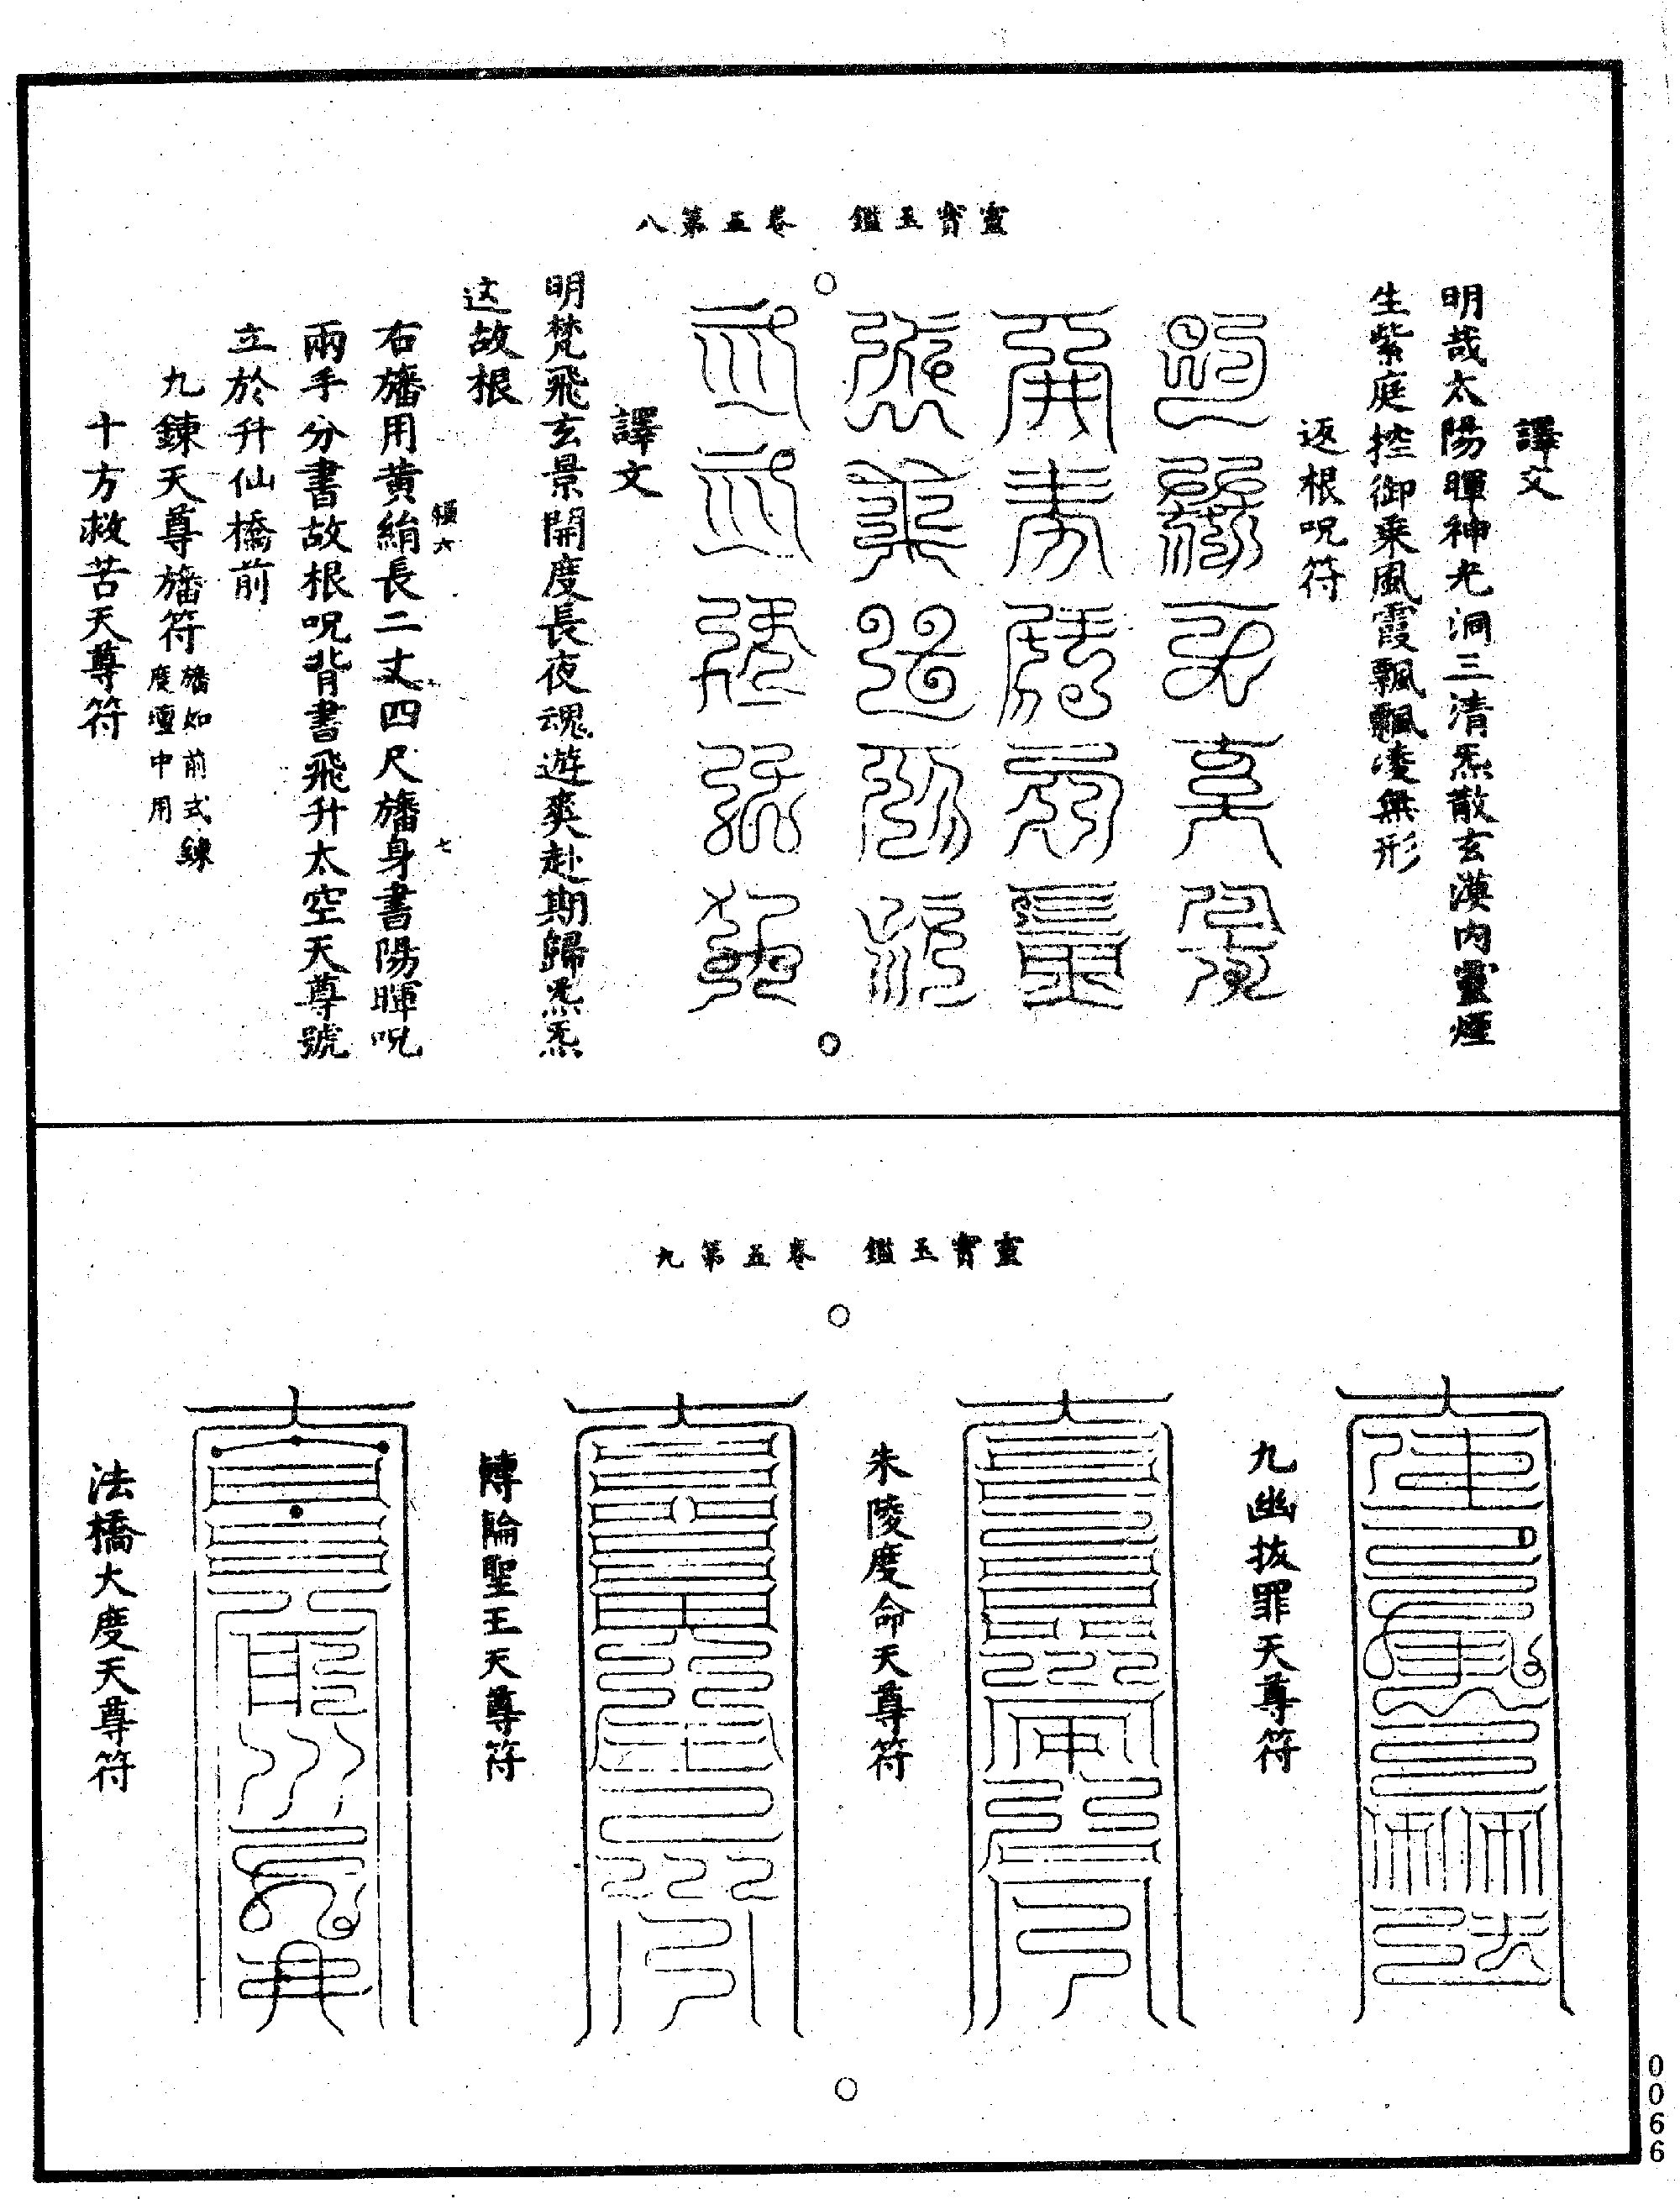 靈寶玉鑑　卷五第八
譯文
明哉太陽暉神光洞三清炁散玄漠內靈煙
生紫庭控御乘風霞飄飄凌無形
返根呪符
譯文
明梵飛玄景開度長夜魂遊爽赴期歸炁炁
返故根
右旛用黃絹長二丈四尺旛身書陽暉呪
兩手分書故根呪背書飛升太空天尊號
立於升仙橋前
九鍊天尊旛符旛如前式鍊
度壇中用
十方救苦天尊符
六
七
靈寶玉鑑　卷五第九
九幽拔罪天尊符
朱陵度命天尊符
轉輪聖王天尊符
法橋大度天尊符
0066